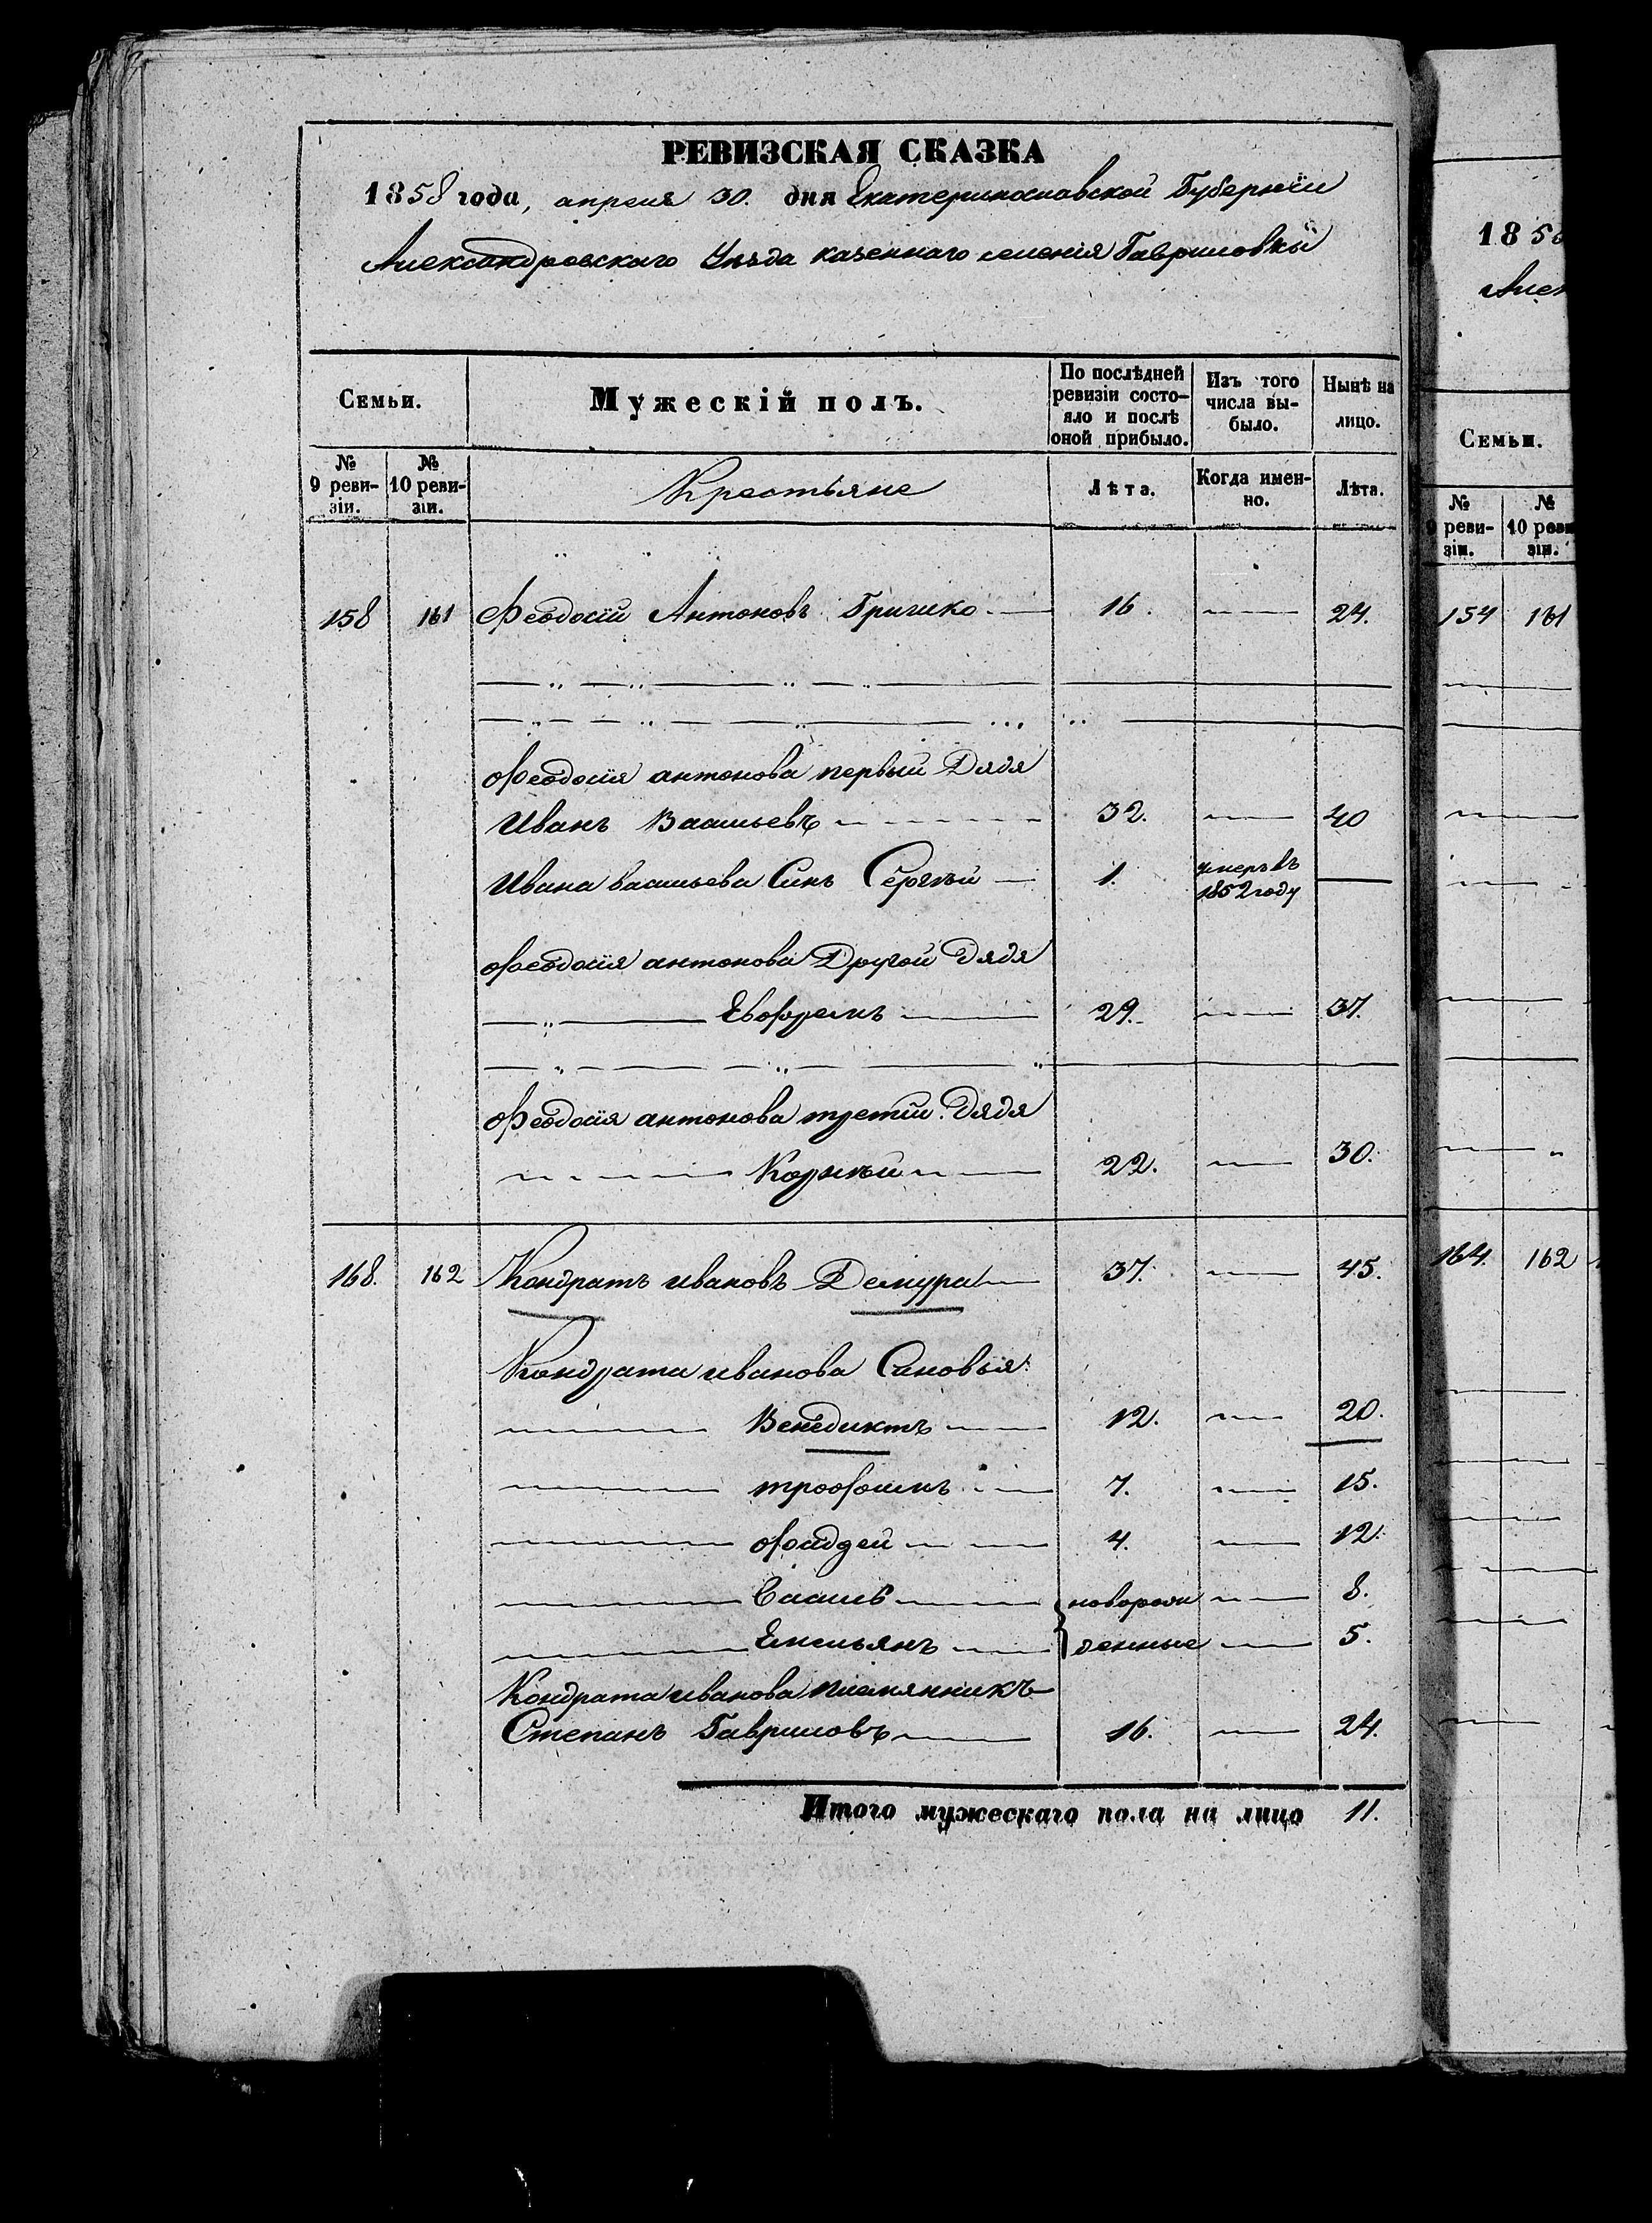 РЕВИЗСКАЯ СКАЗКА
1858 года, апреля 30. дня Екатеринославской Губернїи
Александровскаго Уѣзда казеннаго селенія Гавриловкы
Семьи. Мужескій полъ. По послѣдней ревизіи состо- яло и послѣ оной прибыло. Изъ того числа вы- было. Нынѣ на лицо.
№ 9 реви- зіи. № 10 реви- зіи. Крестьяне Лѣта. Когда имен- но. Лѣта.
158 161 Феодосій Антоновъ Гришко 16. 24.
Феодосія антонова первый Дядя
Иванъ Васильевъ 32. 40
Ивана васильева Синъ Сергѣй 1. умеръ въ 1852 году
Феодосія антонова Другой Дядя
Евфремъ 29. 37.
Феодосія антонова третій Дядя
Корнѣй 22. 30.
168. 162 Кондратъ ивановъ Демура 37. 45.
Кондрата иванова Синовья:
Венедиктъ 12. 20.
трофимъ 7. 15.
фаддей 4. 12.
Сасив новорож 8.
Емельянъ денные 5.
Кондрата иванова племянникъ
Степанъ Гавриловъ 16. 24.
Итого мужескаго пола на лицо 11.
18 58
Алек
Семьи.
№ 9 реви- зіи. № 10 реви зіи.
154 161
164. 162